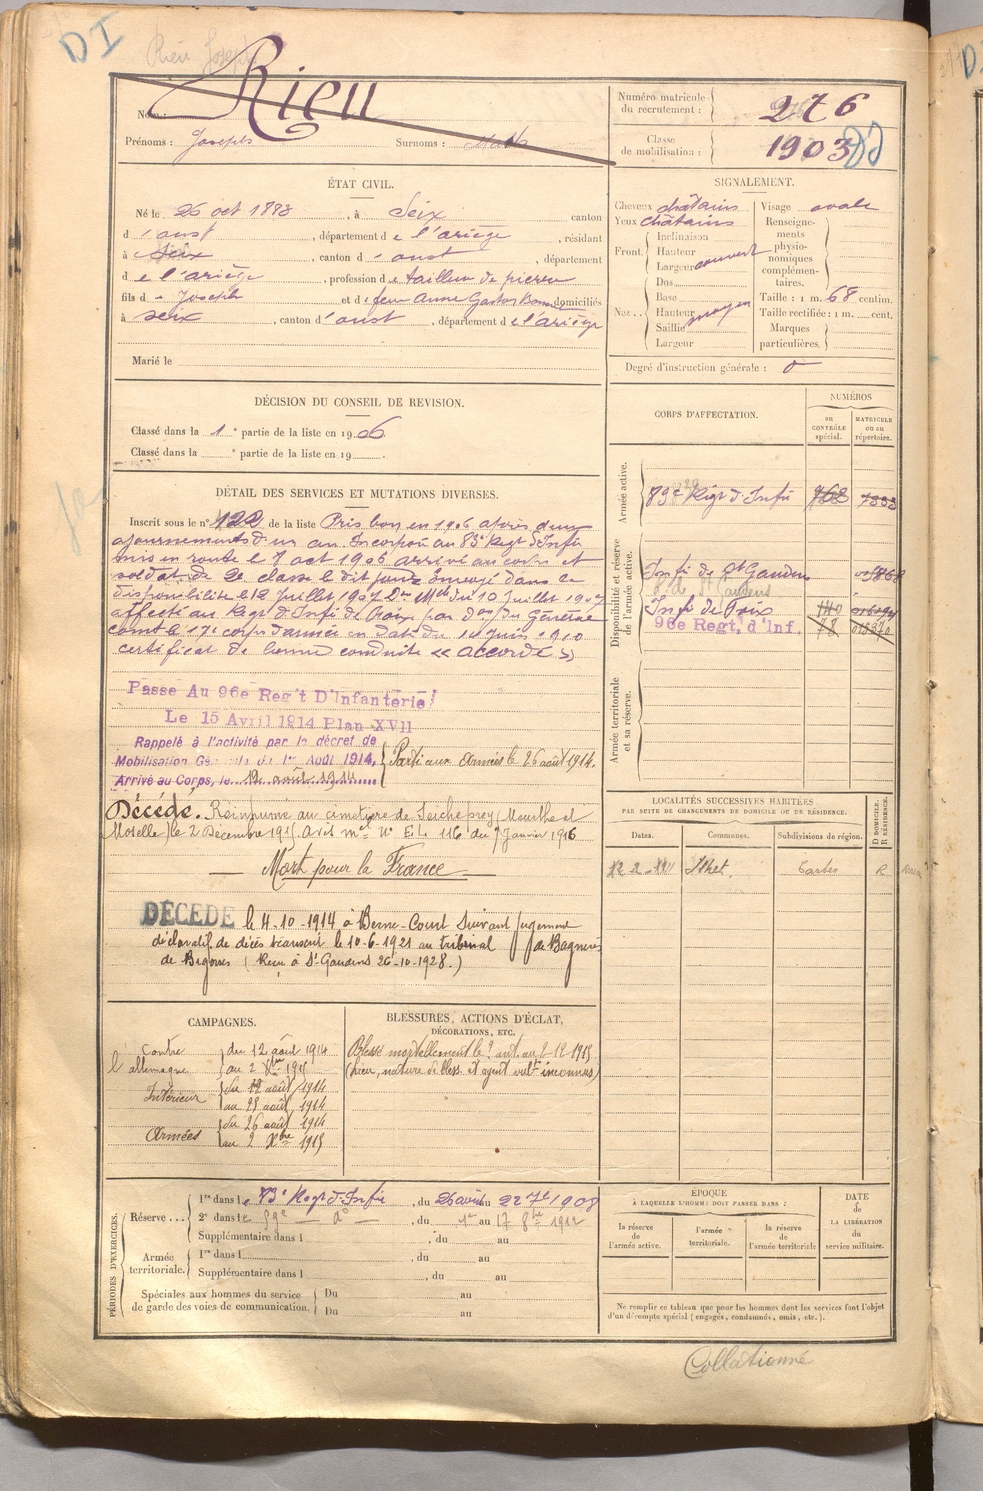 DI
Rieu Joseph
Nom : Rieu
Prénoms : Joseph Surnoms :
Numéro matricule du recrutement : 276
Classe de mobilisation : 1903
ÉTAT CIVIL.
Né le 26 oct 1883, à Seix canton
d'oust, département de l'ariège, résidant
à Seix, canton d'oust, département
de l'ariège, profession de tailleur de pierre
fils de Joseph et de feue Anne domiciliés
à Seix, canton d'oust, département de l'ariège
Marié le
SIGNALEMENT.
Cheveux châtains Visage ovale
Yeux châtains
Front. Inclinaison
Hauteur
Largeur couvert
Nez. Dos
Base
Hauteur moyen
Saillie
Largeur
Renseignements physionomiques complémentaires.
Taille : 1 m. 68 centim.
Taille rectifiée : 1 m. cent.
Marques particulières.
Degré d'instruction générale : 0
DÉCISION DU CONSEIL DE REVISION.
Classé dans la 1e partie de la liste en 1906
Classé dans la e partie de la liste en 19
DÉTAIL DES SERVICES ET MUTATIONS DIVERSES.
Inscrit sous le n° 122 de la liste Pris bon en 1906 après deux
ajournements d'un an. Incorporé au 83e Regt d'Infie
mis en route le 7 oct 1906 arrivé au corps et
soldat de 2e classe le dit jour. Envoyé dans la
disponibilité le 12 juillet 1907 Don Mlle du 10 juillet 1907
affecté au Regt d'Infie de Foix par don du Général
comt le 17e corps d'armée en date du 14 juin 1910
certificat de bonne conduite « accordé »
Passe Au 96e Reg't D'Infanterie
Le 15 Avril 1914 Plan XVII
Rappelé à l'activité par le décret de
Mobilisation Générale du 1er Août 1914.
Arrivé au Corps, le 12 août 1914
Parti aux Armées le 26 août 1914.
Décédé. Réinhumé au cimetière de Seicheprey (Meurthe et
Moselle) le 2 Décembre 1915 Avis mel N° EL 116 du 7 Janvier 1916
— Mort pour la France —
DÉCÉDÉ le 4-10-1914 à Berne-Court Suivant jugement
déclaratif de décès transcrit le 10-6-1921 au tribunal de Bagnères
de Bigorres (Reçu à St Gaudens 26-10-1928.)
CORPS D'AFFECTATION.
NUMÉROS
au CONTRÔLE spécial.
MATRICULE ou au répertoire.
Armée active.
83e Régt d'Infie 768 7333
Disponibilité et réserve de l'armée active.
Infie de St Gaudens
Infie de Foix
96e Regt, d'Inf. 78
Armée territoriale et sa réserve.
LOCALITÉS SUCCESSIVES HABITÉES
PAR SUITE DE CHANGEMENTS DE DOMICILE OU DE RÉSIDENCE.
Dates. Communes. Subdivisions de région. D DOMICILE. R RÉSIDENCE.
Tarbes R
CAMPAGNES.
contre l'allemagne du 12 août 1914
au 2 Xbre 1915
Intérieur du 12 août 1914
au 25 août 1914
Armées du 26 août 1914
au 2 Xbre 1915
BLESSURES, ACTIONS D'ÉCLAT,
DÉCORATIONS, ETC.
Blessé mortellement le ? ant. au 2-12-1915
(lieu, nature de bless. et agent vult inconnus)
PÉRIODES D'EXERCICES.
Réserve... 1re dans le 83e Regt d'Infie, du 26 août au 22 7bre 1908
2e dans le 59e — do —, du 1er au 17 8bre 1912
Supplémentaire dans l , du au
Armée territoriale. 1re dans l
Supplémentaire dans l , du au
Spéciales aux hommes du service de garde des voies de communication. Du au
Du au
ÉPOQUE
À LAQUELLE L'HOMME DOIT PASSER DANS :
la réserve de l'armée active.
l'armée territoriale.
la réserve de l'armée territoriale
DATE de LA LIBÉRATION du service militaire.
Ne remplir ce tableau que pour les hommes dont les services font l'objet
d'un décompte spécial (engagés, condamnés, omis, etc.).
Collationné